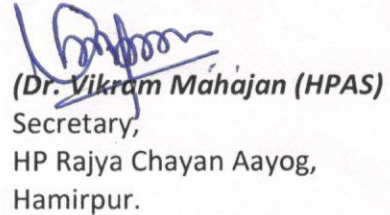 (Dr. Vikram Mahajan (HPAS)
Secretary,
HP Rajya Chayan Aayog,
Hamirpur.